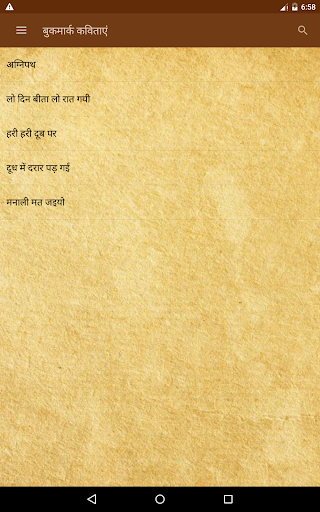 6:58
बुकमार्क कविताएं
अग्निपथ
लो दिन बीता लो रात गयी
हरी हरी दूब पर
दूध में दरार पड़ गई
मनाली मत जइयो